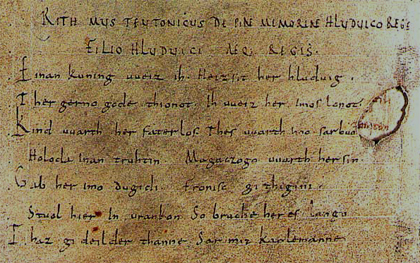 RITHMUS TEUTONICUS DE PIAE MEMORIAE HLUDUICO REGE
FILIO HLUDUICI AEQ; REGIS.
Einan kuning uueiz ih. Heizsit her hluduig.
Ther gerno gode thionot. Ih uueiz her imos lonot.
Kind uuarth her faterlos. Thes uuarth imo sar buoz
Holoda inan truhtin Magaczogo uuarth her sin.
Gab her imo dugidi. Fronisc githigini.
Stuol hier in urankon. So bruche her es lango.
Thaz gideilder thanne. Sar mit karlemanne.